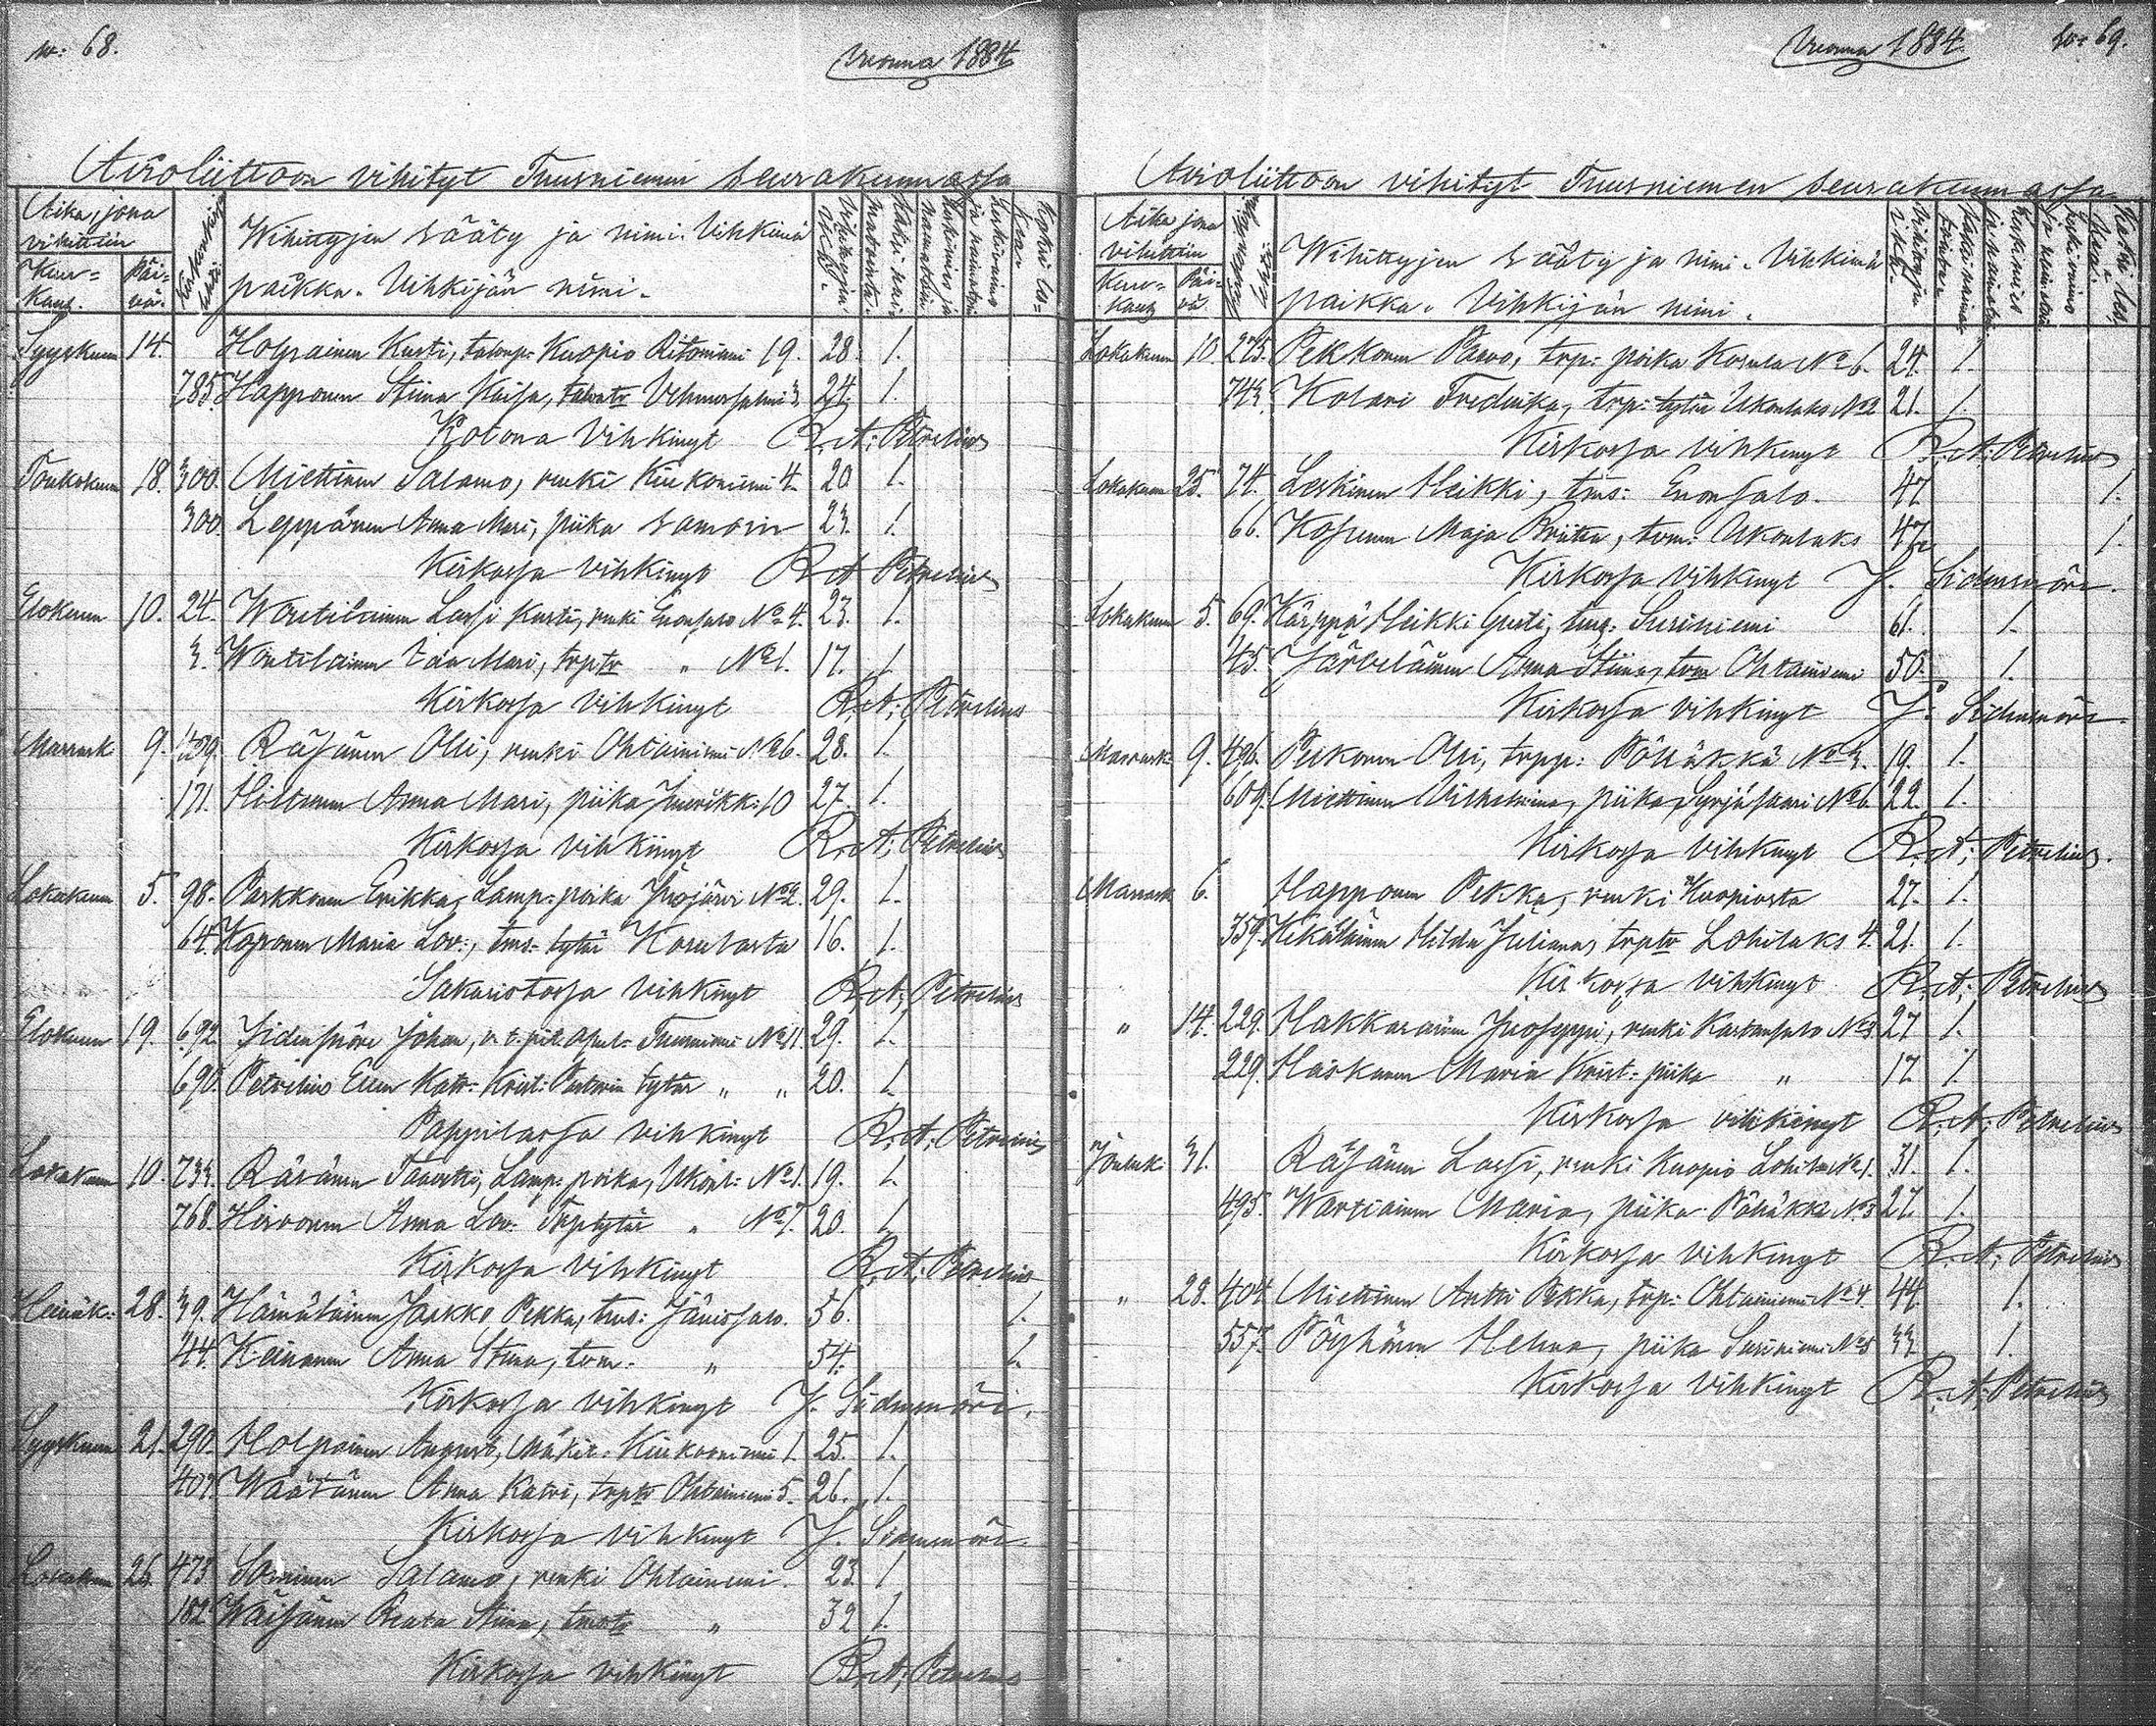 s: 68.
Vuonna 1884
Avioliittoon vihityt Tuusniemen seurakunnassa
Aika, jona vihittiin
Kuu=kausi.
Päi=vä.
Wihittyjen sääty ja nimi. Vihkimä
paikka. Vihkijän nimi.
Syyskuun 14. Holopainen Kusti, talonp: Kuopio Ritoniemi 19. 28. 1.
785. Happonen Stiina Kaisa, talontr Vehmersalmi 3. 24. 1.
Kotona Vihkinyt R: A: Petrelius
Toukokuun 18. 300. Miettinen Salamo, renki Kiukoniemi 4. 20 1.
300. Leppänen Anna Mari, piika samoin 23. 1.
Kirkossa vihkinyt R A Petrelius
Elokuun 10. 24. Woutilainen Lassi Kusti, renki Enonsalo No 4. 23. 1.
3. Woutilainen Ida Mari, trptr " No 1. 17. 1
Kirkossa vihkinyt R: A: Petrelius
Marrask 9. 409. Räsänen Olli, renki Ohtainiemi No 26. 28. 1.
171. Hiltunen Anna Mari, piika Juurikk: 10 27. 1.
Kirkossa vihkinyt R: A: Petrelius
Lokakuun 5. 98. Parkkonen Erikka, Lamp: poika Juojärvi No 2. 29. 1.
64. Koponen Maria Lov:, tms: tytär Kosulasta 16. 1.
Sakaristossa vihkinyt R: A: Petrelius
Elokuun 19. 692. Sidensnöre Johan, v. t. pit. apul: Tuusniemi No 11. 29. 1.
690. Petrelius Ellen Katr: Krist: Pastorin tytär " " 20. 1.
Pappilassa vihkinyt R: A: Petrelius
Lokakuun 10. 733. Räsänen Taavetti, Lamp: poika, Ukonl: No 1. 19. 1.
768. Hirvonen Anna Lov: Trptytär " No 7. 20. 1
Kirkossa vihkinyt R: A: Petrelius
Heinäk: 28. 39. Hämäläinen Jaakko Pekka, tms: Jänissalo. 56. 1.
44. Keinänen Anna Stina, tom: " 54. 1.
Kirkossa vihkinyt J. Sidensnöre.
Syyskuun 21. 290. Holopainen August, Mäkit: Kiukooniemi 1. 25. 1.
407. Wäätänen Anna Katri, trptr Ohtainiemi 5. 26. 1.
Kirkossa vihkinyt J. Sidensnöre.
Lokakuun 26. 473 Soininen Salamo, renki Ohtainiemi. 23. 1
182. Wäisänen Beata Stiina, tmstr " 32 1.
Kirkossa vihkinyt R: A: Petrelius
Vuonna 1884. s: 69.
Avioliittoon vihityt Tuusniemen seurakunnassa
Aika jona vihittiin
Kuu=kausi
Päi=vä.
Wihittyjen sääty ja nimi. Vihkimä
paikka. Vihkijän nimi.
Lokakuun 10. 275. Pekkonen Paavo, trp: poika Kosula No 6. 24. 1.
743. Kolari Fredriika, trp: tytär Ukonlaks No 2 21. 1.
Kirkossa vihkinyt R: A: Petrelius
Lokakuun 25. 74. Leskinen Heikki, tms: Enonsalo. 47 1.
66. Kosunen Maja Briitta, tom: Ukonlaks 47 1.
Kirkossa vihkinyt J. Sidensnöre.
Lokakuun 5. 69. Kärppä Heikki Gusti, tms: Susiniemi 61. 1.
45. Järveläinen Anna Stiina, tom Ohtainiemi 50. 1.
Kirkossa vihkinyt J: Sidensnöre.
Marrask 9. 496. Pekonen Olli, trpp: Pölläkkä No 3. 19. 1.
609. Miettinen Vilhelmina, piika Syrjäsaari No 6. 22. 1.
Kirkossa vihkinyt R: A: Petrelius.
Marrask 6. Happonen Pekka, renki Kuopiosta 27. 1.
359. Hilda Juliana, trptr Lohilaks 4. 21. 1.
Kirkossa vihkinyt R: A: Petrelius
" 14. 229. Hakkarainen Juoseppi, renki Kartansalo No 3. 27 1.
229. Häskänen Maria Krist: piika " 17. 1.
Kirkossa vihkinyt R: A: Petrelius
Jouluk: 31. Räsänen Lassi, renki Kuopio Lohilaks 1. 31. 1.
495. Wartiainen Maria, piika Pölläkkä No 3 27. 1.
Kirkossa vihkinyt R: A: Petrelius
" 28. 404. Miettinen Antti Pekka, trp: Ohtainiemi No 4. 44. 1.
557. Pöyhönen Helena, piika Susiniemi No 5 33 1.
Kirkossa vihkinyt R: A: Petrelius